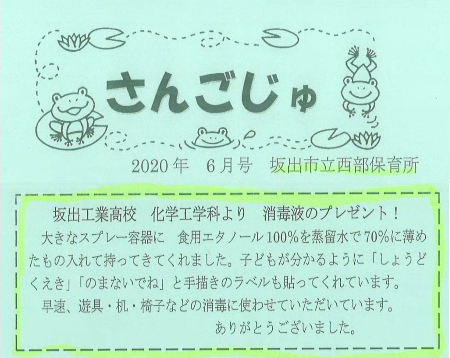 さんごじゅ
2020年 6月号 坂出市立西部保育所
坂出工業高校 化学工学科より 消毒液のプレゼント！
大きなスプレー容器に 食用エタノール100％を蒸留水で70％に薄め
たもの入れて持ってきてくれました。子どもが分かるように「しょうど
くえき」「のまないでね」と手描きのラベルも貼ってくれています。
早速、遊具・机・椅子などの消毒に使わせていただいています。
ありがとうございました。